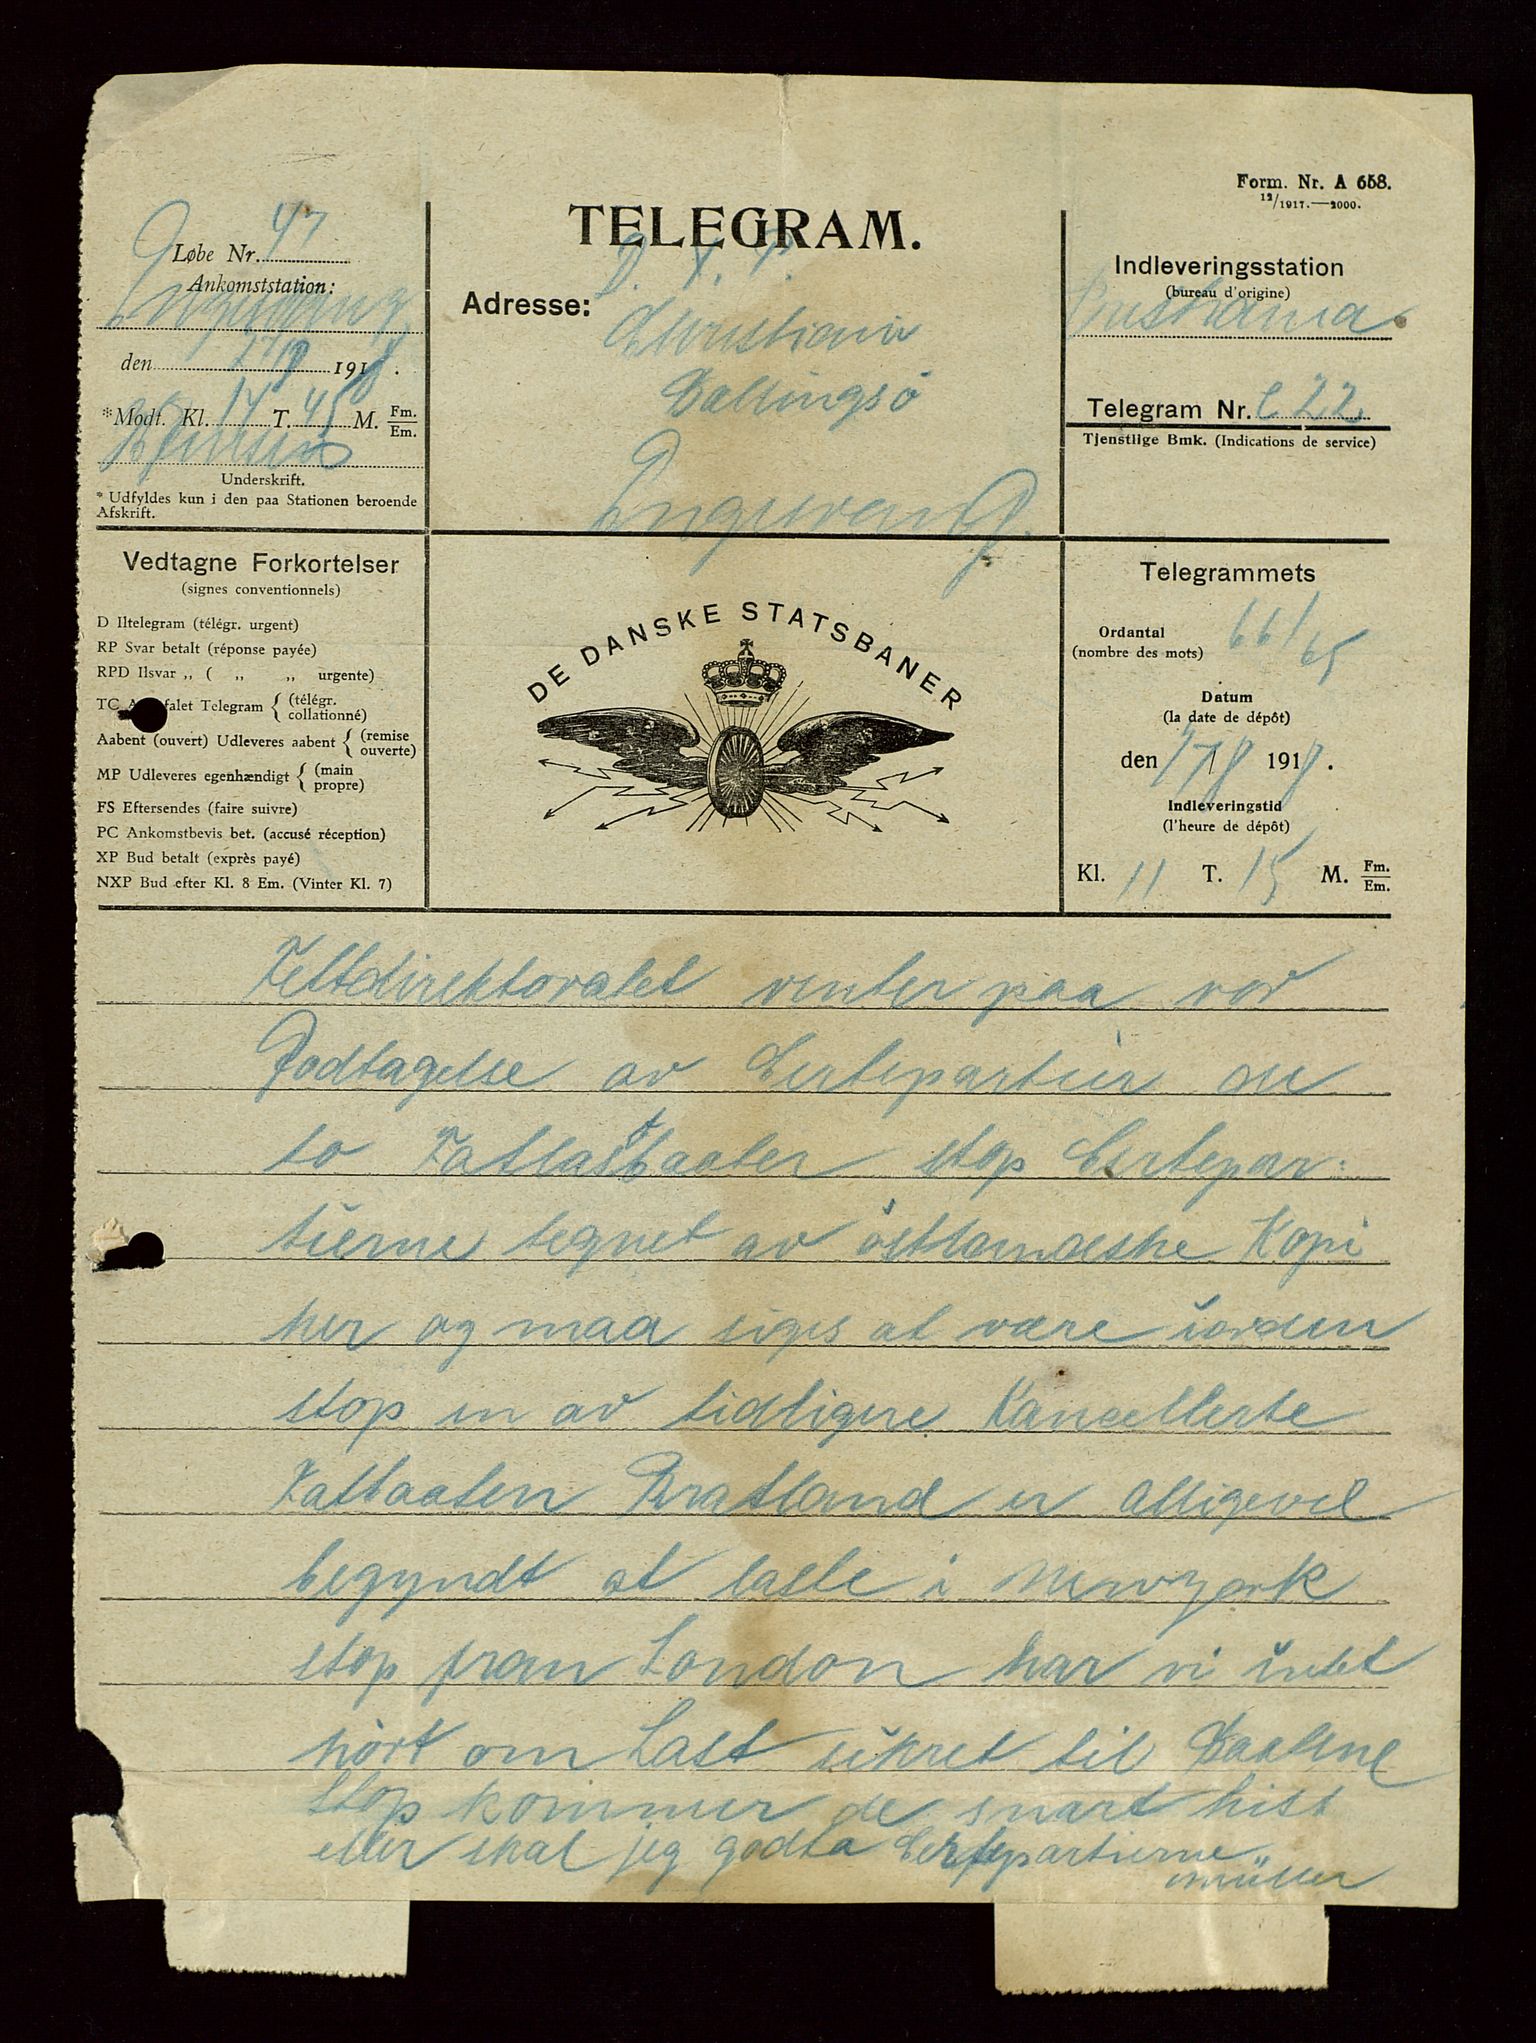 Form. Nr. A 658.
12/1917.—2000.
TELEGRAM.
Løbe Nr. 47
Ankomststation:
Engesvang
den 17/8 1918.
*Modt. Kl. 14 T. 45 M. Fm./Em.
Underskrift.
* Udfyldes kun i den paa Stationen beroende
Afskrift.
Adresse:
Christian
Engesvang.
Indleveringsstation
(bureau d'origine)
Kristiania.
Telegram Nr. C 22.
Tjenstlige Bmk. (Indications de service)
Vedtagne Forkortelser
(signes conventionnels)
D Iltelegram (télégr. urgent)
RP Svar betalt (réponse payée)
RPD Ilsvar „ ( „ „ urgente)
TC falet Telegram { (télégr. collationné)
Aabent (ouvert) Udleveres aabent { (remise ouverte)
MP Udleveres egenhændigt { (main propre)
FS Eftersendes (faire suivre)
PC Ankomstbevis bet. (accusé réception)
XP Bud betalt (exprès payé)
NXP Bud efter Kl. 8 Em. (Vinter Kl. 7)
DE DANSKE STATSBANER
Telegrammets
Ordantal
(nombre des mots) 66/65
Datum
(la date de dépôt)
den 17/8 1918.
Indleveringstid
(l'heure de dépôt)
Kl. 11 T. 15 M. Fm./Em.
Fettdirektoratet venter paa vor
Godtagelse av Certepartier
to stop Certepar:
tierne tegnet av östlandske Kopi
her og maa siges at være iorden
stop en av tidligere Kancellerte
Fatbaaten Bratland er alligevel
begyndt at laste i Newyork
stop fran London har vi intet
hört om Last sikret til Baatene
stop kommer de snart hist
eller skal jeg godta Certepartierne
Müller